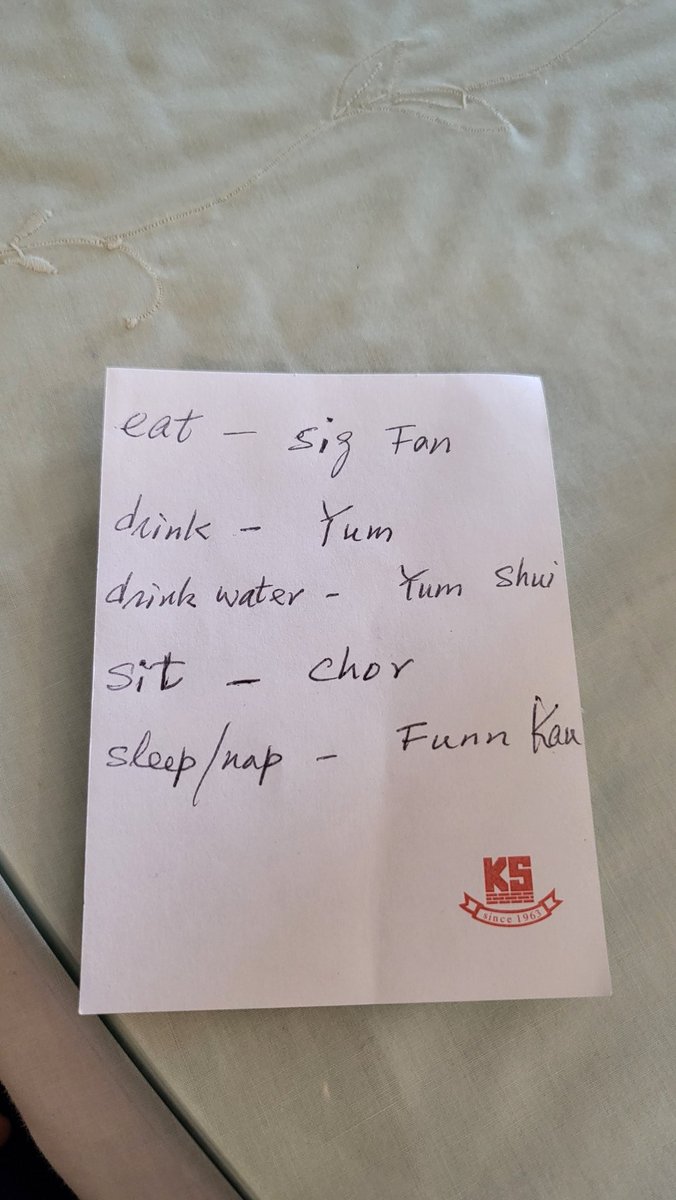 eat – sig Fan
drink – Yum
drink water – Yum Shui
sit – chor
sleep/nap – Funn Kau
KS
since 1963